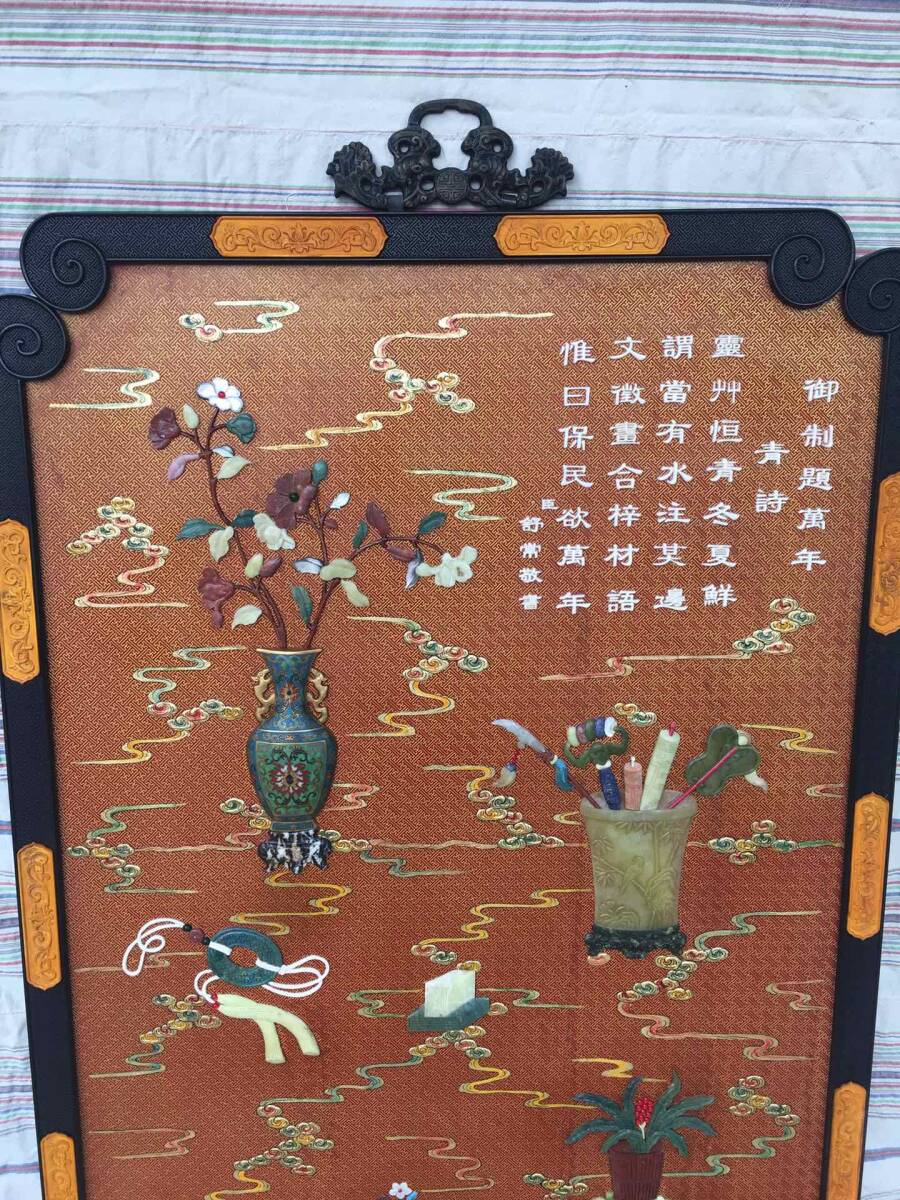 御制題萬年
青詩
靈艸恒青冬夏鮮
謂當有水注其邊
文徵畫合梓材語
惟曰保民欲萬年
臣舒常敬書